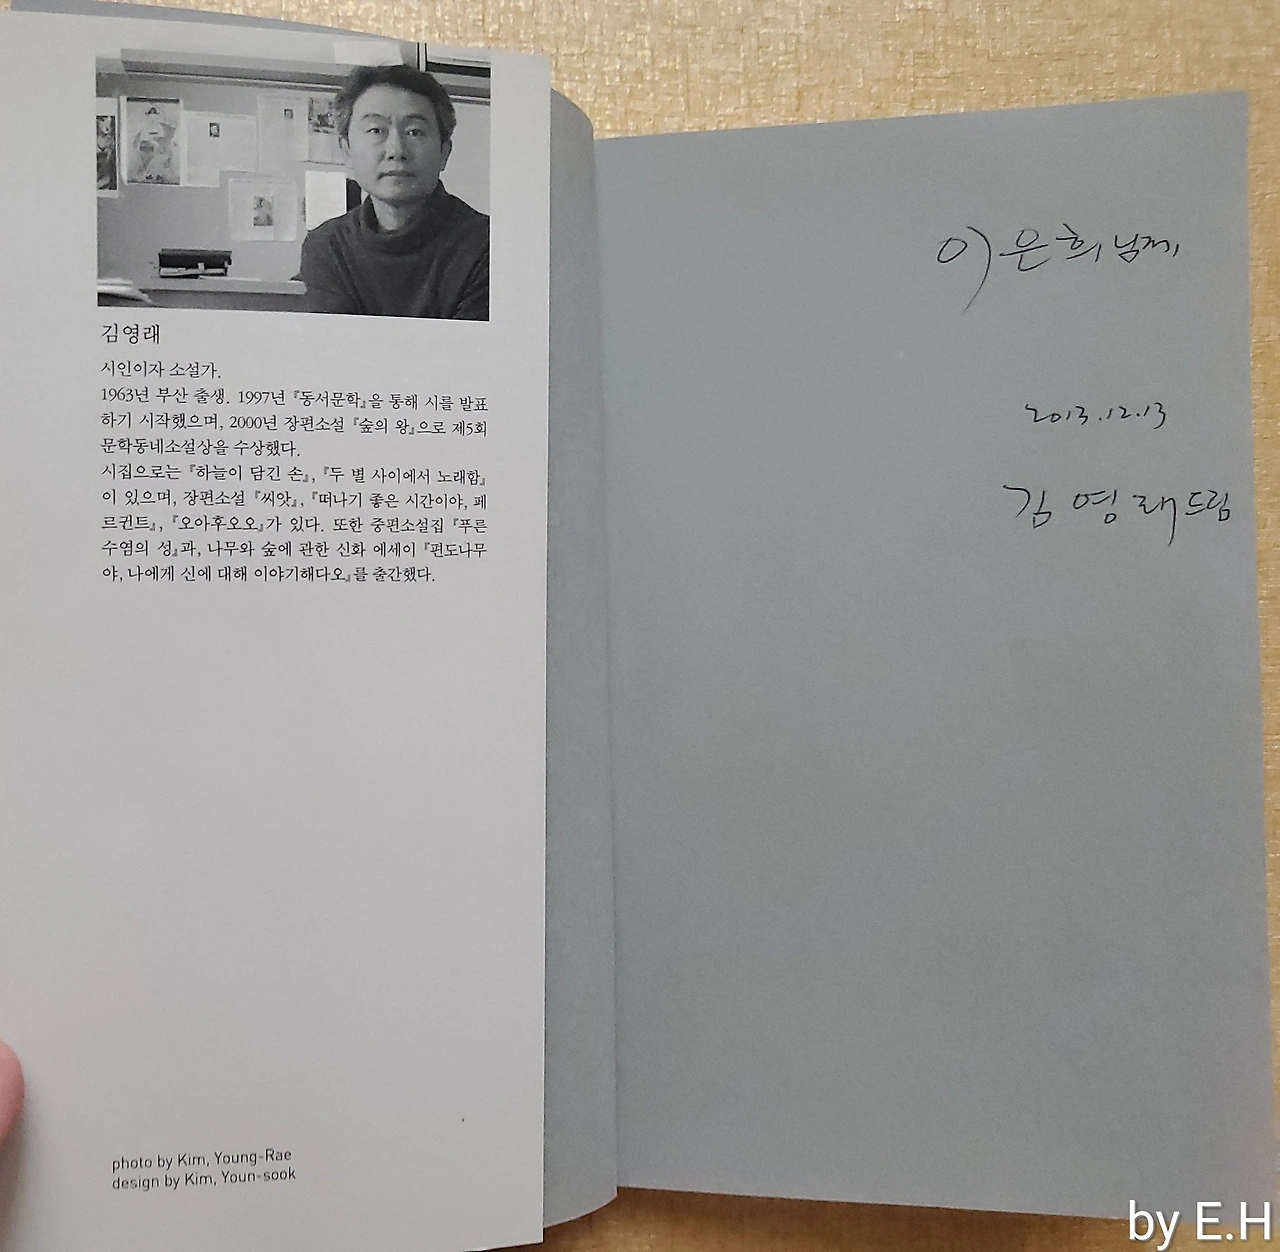 김영래
시인이자 소설가.
1963년 부산 출생. 1997년 『동서문학』을 통해 시를 발표
하기 시작했으며, 2000년 장편소설 『숲의 왕』으로 제5회
문학동네소설상을 수상했다.
시집으로는 『하늘이 담긴 손』, 『두 별 사이에서 노래함』
이 있으며, 장편소설 『씨앗』, 『떠나기 좋은 시간이야, 페
르귄트』, 『오아후오오』가 있다. 또한 중편소설집 『푸른
수염의 성』과, 나무와 숲에 관한 신화 에세이 『편도나무
야, 나에게 신에 대해 이야기해다오』를 출간했다.
photo by Kim, Young-Rae
design by Kim, Youn-sook
이은희님께
2013.12.13
김영래드림
by E.H